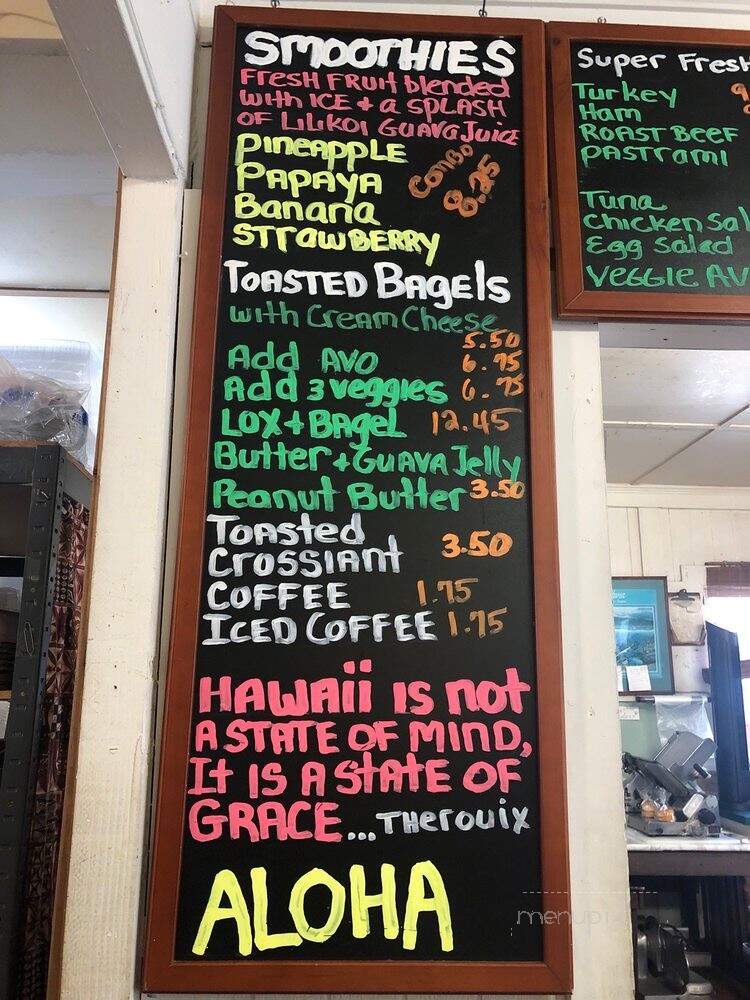 SMOOTHIES
FRESH FRUIT blended
with ICE + a SPLASH
OF LILIKOI GUAVA JUICE
PINEAPPLE
PAPAYA
Banana
STRAWBERRY
Combo
8.25
TOASTED BAGELS
with Cream Cheese
5.50
Add AVO 6.75
Add 3 veggies 6.75
LOX + BAGEL 12.45
Butter + GUAVA Jelly
Peanut Butter 3.50
TOASTED
CROSSIANT 3.50
COFFEE 1.75
ICED COFFEE 1.75
HAWAII IS not
A STATE OF MIND,
It IS A STATE OF
GRACE...THEROUIX
ALOHA
Super Fresh
Turkey
Ham
ROAST BEEF
PASTRAMI
Tuna
Chicken Sal
Egg Salad
VEGGIE AV